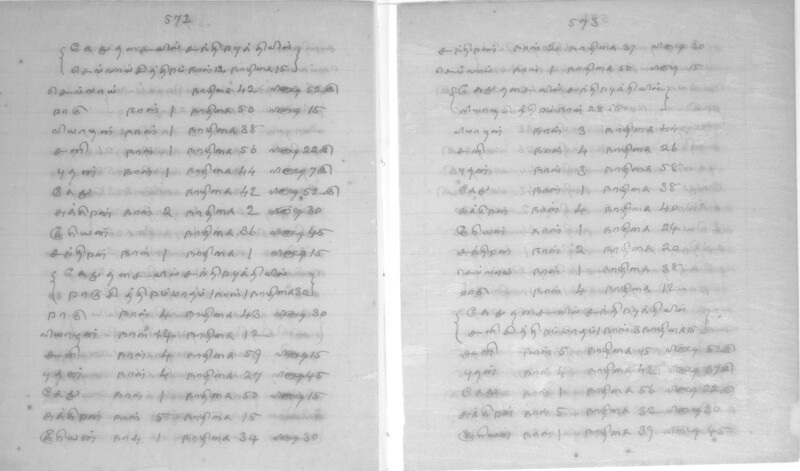 572
{ கேது தசையில் சந்திரபுத்தியில்
செவ்வாய் சித்திரம் நாள் 12 நாழிகை 15 }
செவ்வாய் நாழிகை 42 வினாடி 52
ராகு நாள் 1 நாழிகை 50 வினாடி 15
வியாழன் நாள் 1 நாழிகை 38
சனி நாள் 1 நாழிகை 56 வினாடி 22
புதன் நாள் 1 நாழிகை 44 வினாடி 7
கேது நாழிகை 42 வினாடி 52
சுக்கிரன் நாள் 2 நாழிகை 2 வினாடி 30
சூரியன் நாழிகை 36 வினாடி 45
சந்திரன் நாள் 1 நாழிகை 1 வினாடி 15
{ கேது தசையில் சந்திரபுத்தியில்
ராகு சித்திரம் மாதம் 1 நாள் 1 நாழிகை 30 }
ராகு நாள் 4 நாழிகை 43 வினாடி 30
வியாழன் நாள் 4 நாழிகை 12
சனி நாள் 4 நாழிகை 59 வினாடி 15
புதன் நாள் 4 நாழிகை 27 வினாடி 45
கேது நாள் 1 நாழிகை 50 வினாடி 15
சுக்கிரன் நாள் 5 நாழிகை 15
சூரியன் நாள் 1 நாழிகை 34 வினாடி 30
573
சந்திரன் நாள் 2 நாழிகை 37 வினாடி 30
செவ்வாய் நாள் 1 நாழிகை 50 வினாடி 15
{ கேது தசையில் சந்திரபுத்தியில்
வியாழ சித்திரம் நாள் 28 }
வியாழன் நாள் 3 நாழிகை 44
சனி நாள் 4 நாழிகை 26
புதன் நாள் 3 நாழிகை 58
கேது நாள் 1 நாழிகை 38
சுக்கிரன் நாள் 4 நாழிகை 40
சூரியன் நாள் 1 நாழிகை 24
சந்திரன் நாள் 2 நாழிகை 20
செவ்வாய் நாள் 1 நாழிகை 38
ராகு நாள் 4 நாழிகை 12
{ கேது தசையில் சந்திரபுத்தியில்
சனி சித்திரம் மாதம் 1 நாள் 3 நாழிகை 15 }
சனி நாள் 5 நாழிகை 15 வினாடி 52
புதன் நாள் 4 நாழிகை 42 வினாடி 37
கேது நாள் 1 நாழிகை 56 வினாடி 22
சுக்கிரன் நாள் 5 நாழிகை 32 வினாடி 30
சூரியன் நாள் 1 நாழிகை 39 வினாடி 45